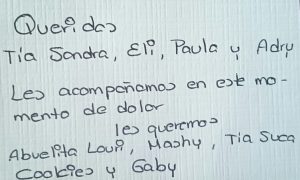 Queridas
Tía Sandra, Eli, Paula y Adry
Les acompañamos en este mo-
mento de dolor
les queremos
Abuelita Louri, Mashy, Tia Suca
Cookies y Gaby